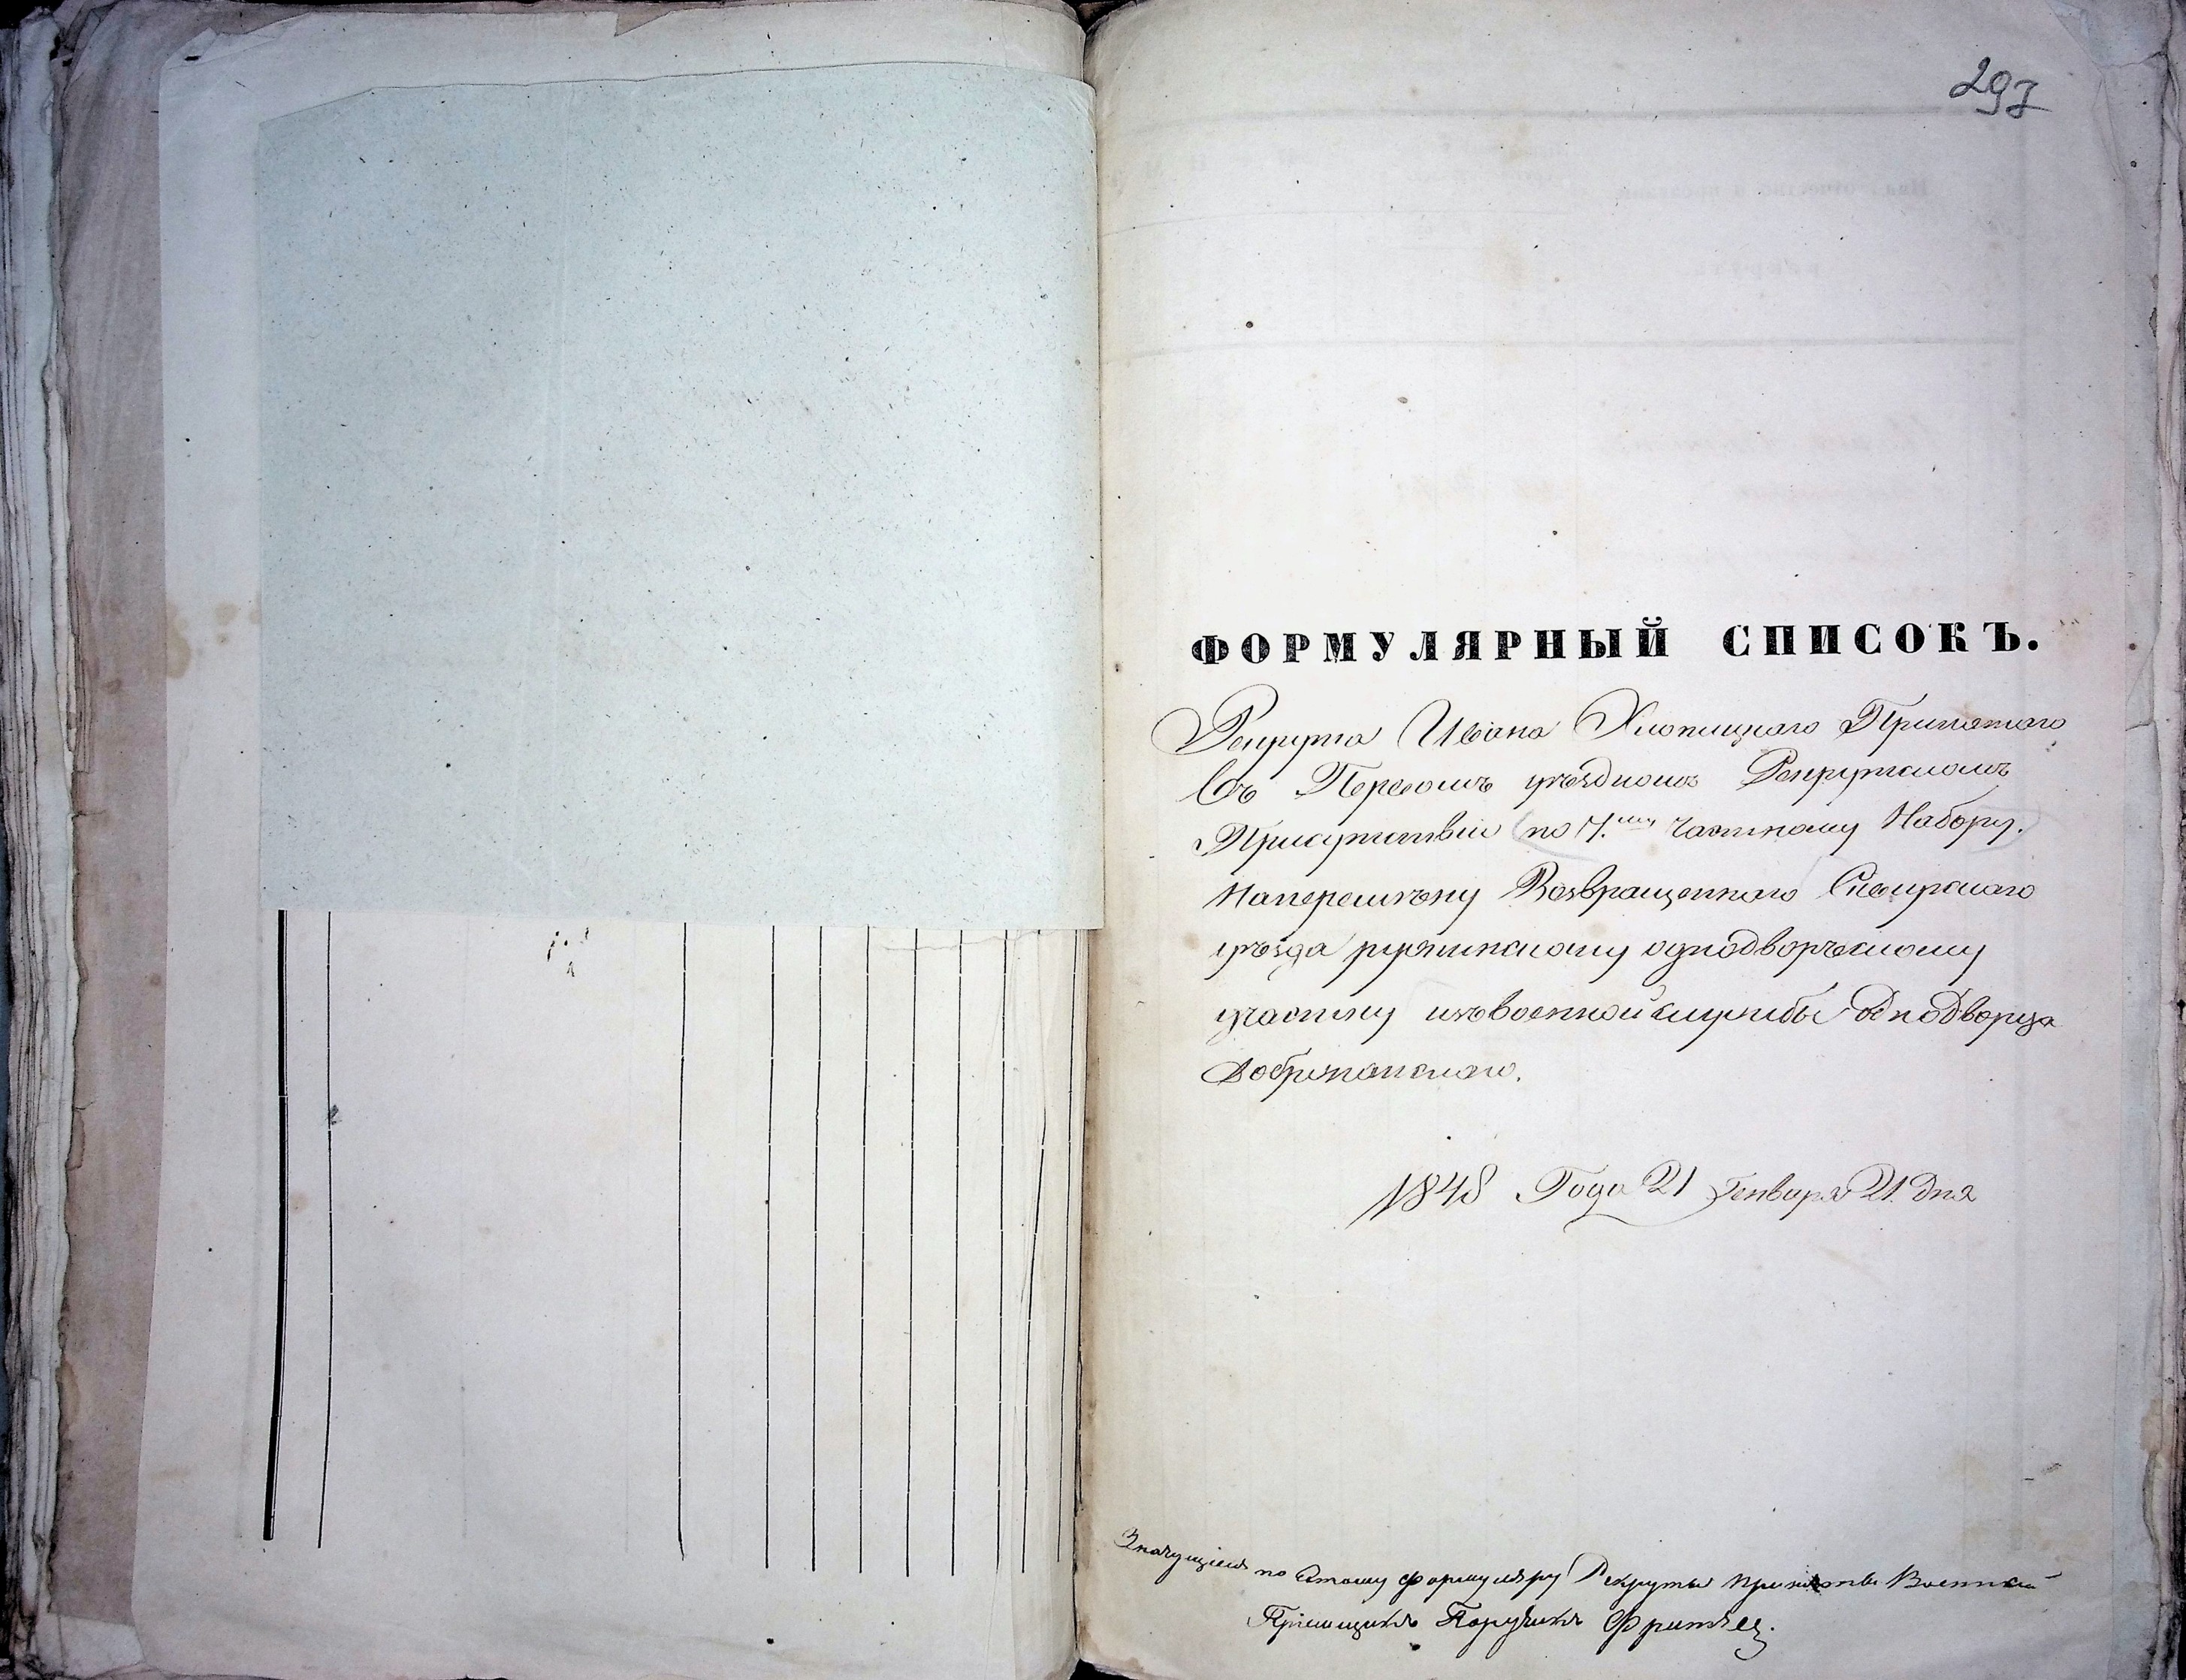 297
ФОРМУЛЯРНЫЙ СПИСОКЪ.
Рекрута Ивана Хлопицкаго Принятаго
Въ уѣздномъ Рекрутскомъ
Присутствіи по 7.му частному Набору.
На перемѣну Возвращеннаго Сквирскаго
уѣзда ружинскому однодворческому
участку изъ военной службы Однодворца
Добржанскаго.
1848 Года 21 Генваря 21. дня
Значущіеся по Этому формуляру Рекруты приняты Военной
Пріемщикъ Поручикъ